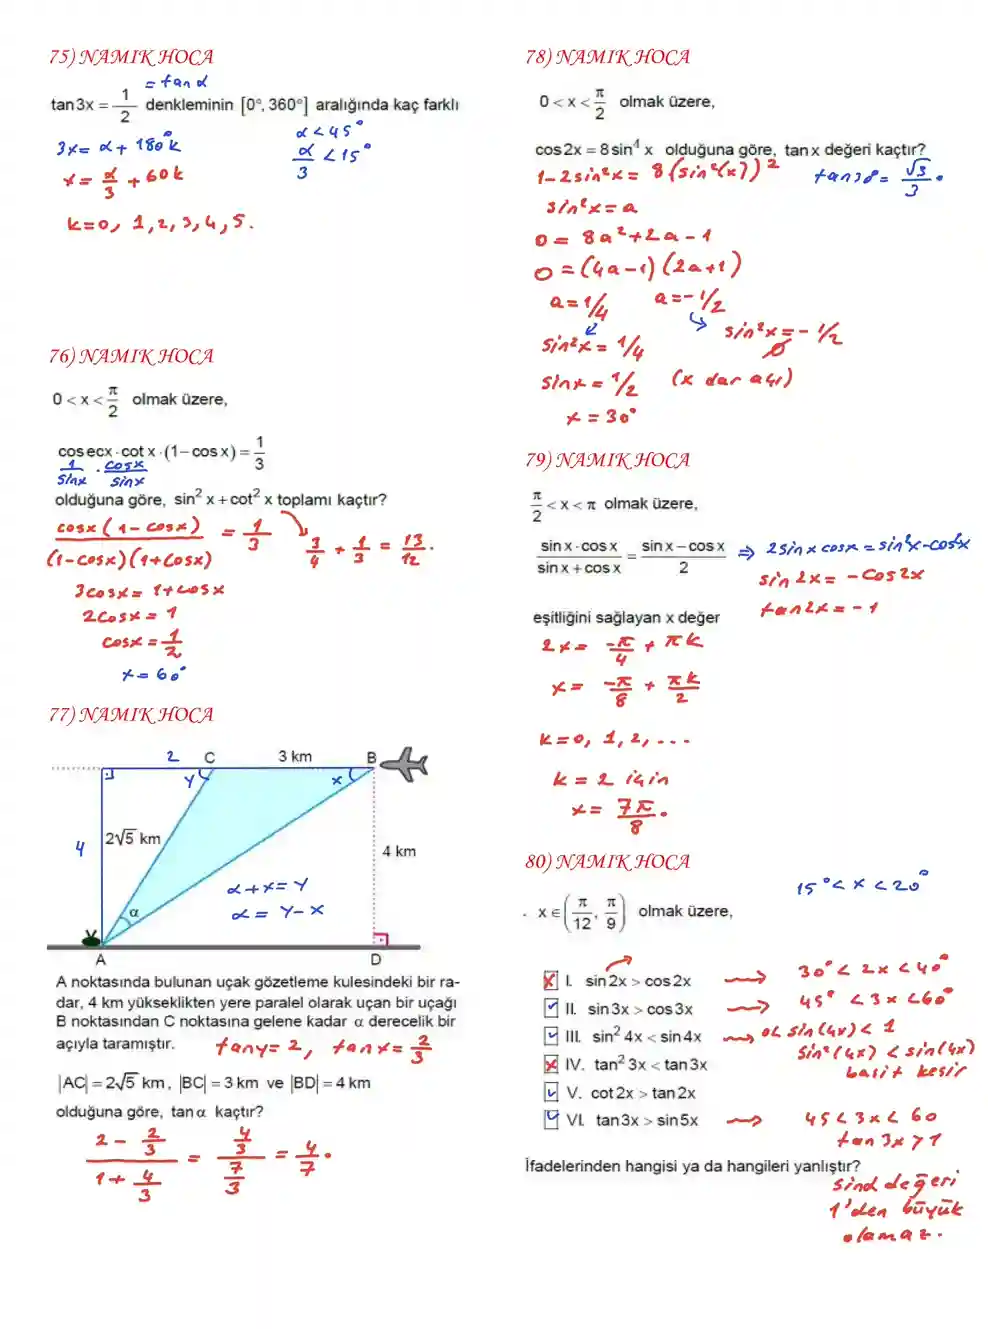 75) NAMIK HOCA
= tan α
tan3x = 1/2 denkleminin [0°, 360°] aralığında kaç farklı
3x = α + 180°k
α < 45°
α/3 < 15°
x = α/3 + 60k
k=0, 1, 2, 3, 4, 5.
76) NAMIK HOCA
0 < x < π/2 olmak üzere,
cosecx · cot x · (1 – cos x) = 1/3
1/sinx · cosx/sinx
olduğuna göre, sin² x + cot² x toplamı kaçtır?
cosx (1 - cosx) / (1-cosx)(1+cosx) = 1/3
3/4 + 1/3 = 13/12.
3cosx = 1+cosx
2cosx = 1
cosx = 1/2
x = 60°
77) NAMIK HOCA
2 C 3 km B
y x
4 2√5 km 4 km
α + x = y
α = y - x
α
A D
A noktasında bulunan uçak gözetleme kulesindeki bir ra-
dar, 4 km yükseklikten yere paralel olarak uçan bir uçağı
B noktasından C noktasına gelene kadar α derecelik bir
açıyla taramıştır.
tany = 2, tanx = 2/3
|AC| = 2√5 km, |BC| = 3 km ve |BD| = 4 km
olduğuna göre, tan α kaçtır?
(2 - 2/3) / (1 + 4/3) = (4/3) / (7/3) = 4/7.
78) NAMIK HOCA
0 < x < π/2 olmak üzere,
cos2x = 8sin⁴ x olduğuna göre, tan x değeri kaçtır?
1-2sin²x = 8(sin²(x))²
tan30° = √3/3.
sin²x = a
0 = 8a²+2a-1
0 = (4a-1)(2a+1)
a = 1/4 a = -1/2
sin²x = 1/4
sin²x = -1/2
∅
sinx = 1/2 (x dar açı)
x = 30°
79) NAMIK HOCA
π/2 < x < π olmak üzere,
sin x · cos x / sin x + cos x = sin x – cos x / 2 ⇒ 2sinx cosx = sin²x-cos²x
sin2x = -cos2x
tan2x = -1
eşitliğini sağlayan x değer
2x = -π/4 + πk
x = -π/8 + πk/2
k=0, 1, 2, ...
k = 2 için
x = 7π/8.
80) NAMIK HOCA
15° < x < 20°
. x ∈ (π/12, π/9) olmak üzere,
I. sin2x > cos2x → 30° < 2x < 40°
II. sin3x > cos3x → 45° < 3x < 60°
III. sin² 4x < sin 4x → 0 < sin(4x) < 1
sin²(4x) < sin(4x)
IV. tan² 3x < tan3x
basit kesir
V. cot2x > tan2x
VI. tan3x > sin5x → 45 < 3x < 60
tan 3x > 1
İfadelerinden hangisi ya da hangileri yanlıştır?
sinα değeri
1'den büyük
olamaz.